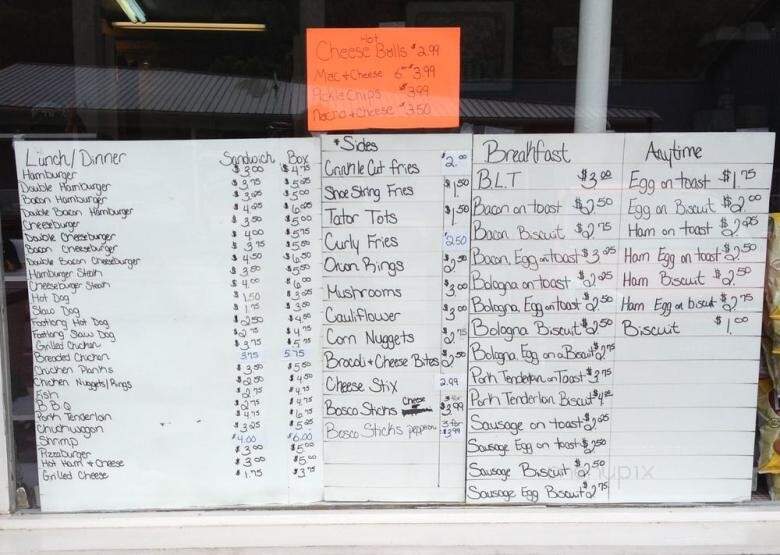 Hot
Cheese Balls $2.99
Mac + Cheese 6 - $3.99
Pickle Chips $3.99
Nacho + Cheese $3.50
Lunch/Dinner Sandwich Box
Hamburger $3.00 $4.75
Double Hamburger $3.75
Bacon Hamburger
Double Bacon Hamburger
Cheeseburger $3.50 $5.00
Double Cheeseburger $4.00 $5.75
Bacon Cheeseburger $3.75 $5.50
Double Bacon Cheeseburger $4.50 $6.50
Hamburger Steak
Cheeseburger Steak $4.00 $6.00
Hot Dog $1.50
Slaw Dog $1.75
Footlong Hot Dog $2.50
Footlong Slaw Dog $2.75 $4.75
Grilled Chicken $3.75 $5.75
Breaded Chicken 3.75 5.75
Chicken Planks $3.50 $5.50
Chicken Nuggets/Rings $2.50 $4.50
Fish $2.75 $4.75
B B Q $2.75 $4.75
Pork Tenderloin $4.75
Chuckwagon
Shrimp $4.00 $6.00
Pizzaburger $3.00 $5.00
Hot Ham + Cheese $3.00 $5.00
Grilled Cheese $1.75 $3.75
*Sides
Crinkle Cut fries $2.00
Shoe String Fries $1.50
Tator Tots $1.50
Curly Fries 2.50
Onion Rings $2.50
Mushrooms $3.00
Cauliflower $3.00
Corn Nuggets $2.75
Brocoli + Cheese Bites $2.50
Cheese Stix 2.99
Bosco Sticks Cheese 3 for $3.99
Bosco Sticks pepperoni 3 for $3.99
Breakfast
B.L.T $3.00
Bacon on toast $2.50
Bacon Biscuit $2.75
Bacon, Egg on toast $3.25
Bologna on toast $2.25
Bologna, Egg on toast $2.50
Bologna Biscuit $2.50
Bologna Egg on a Biscuit $2.75
Pork Tenderloin on Toast $3.75
Pork Tenderloin Biscuit
Sausage on toast $2.25
Sausage Egg on toast $2.50
Sausage Biscuit $2.50
Sausage Egg Biscuit $2.75
Anytime
Egg on toast $1.75
Egg on Biscuit $2.00
Ham on toast $2.25
Ham Egg on toast $2.50
Ham Biscuit $2.50
Ham Egg on biscuit $2.75
Biscuit $1.00
menupix